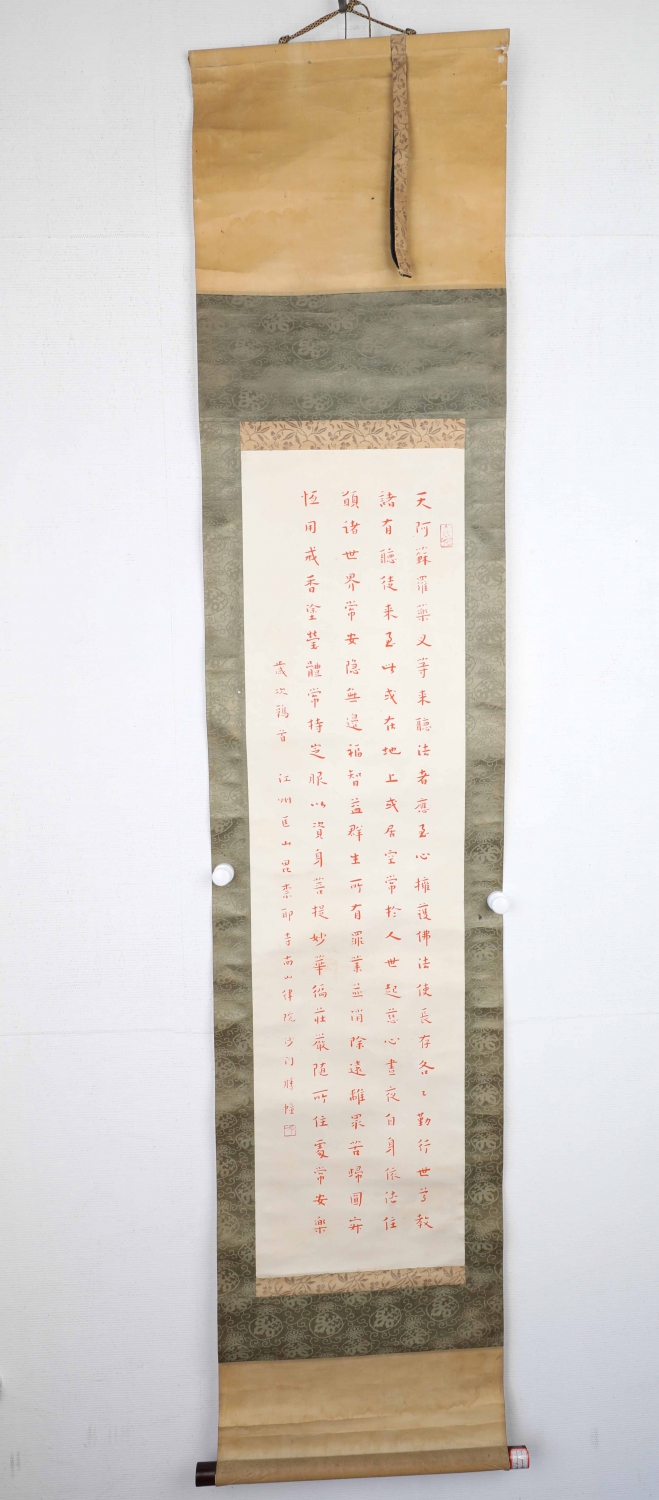 天阿蘇羅藥叉等来聽法者應至心擁護佛法使長存各〻勤行世尊教
諸有聽徒来至此或在地上或居空常於人世起慈心晝夜自身依法住
願诸世界常安隐無邊福智益群生所有罪業並消除遠離眾苦歸圓寂
恆用戒香塗瑩體常持定服以資身菩提妙華徧莊嚴随所住處常安樂
歲次鶉首 江州匡山毘柰耶寺南山律院沙门勝幢